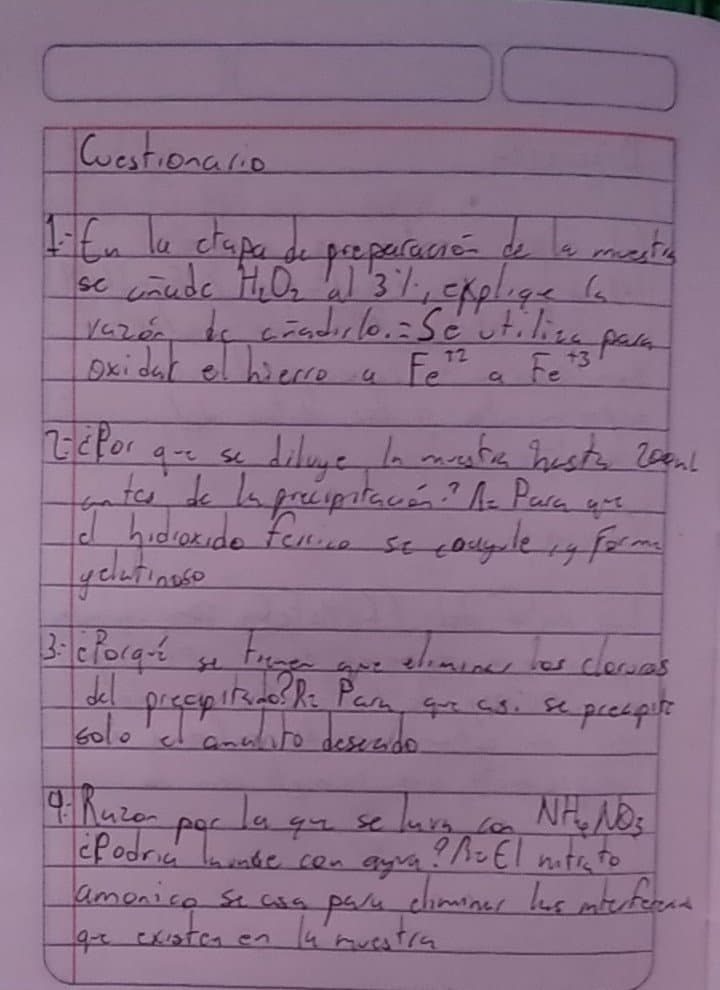 Cuestionario
1.- En la etapa de preparación de la muestra
se añade H₂O₂ al 3%, explique la
razón de añadirlo.= Se utiliza para
oxidar el hierro a Fe⁺² a Fe⁺³
2-¿Por que se diluye la muestra hasta 200ml
antes de la precipitación? R= Para que
el hidroxido ferrico se coagule, y forme
gelatinoso
3.-¿Porqué se tienen que eliminar los cloruros
del precipitado? R= Para que asi se precipite
solo el analito deseado
4.- Razon por la que se lava con NH₄NO₃
¿Podria con agua? R= El nitrato
amonico se usa para eliminar las
que existen en la muestra